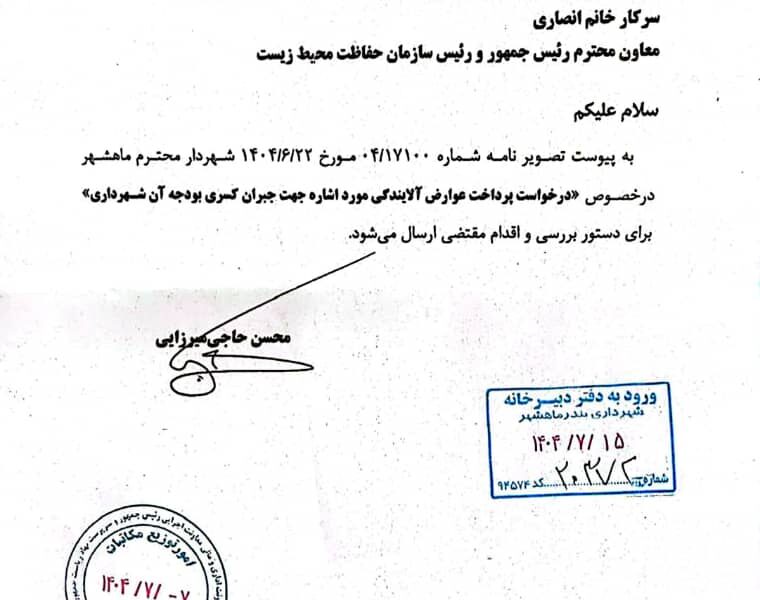 سرکار خانم انصاری
معاون محترم رئیس جمهور و رئیس سازمان حفاظت محیط زیست
سلام علیکم
به پیوست تصویر نامه شماره ۰۴/۱۷۱۰۰ مورخ ۱۴۰۴/۶/۲۲ شهردار محترم ماهشهر
درخصوص «درخواست پرداخت عوارض آلایندگی مورد اشاره جهت جبران کسری بودجه آن شهرداری»
برای دستور بررسی و اقدام مقتضی ارسال می‌شود.
محسن حاجی‌میرزایی
ورود به دفتر دبیرخانه
شهرداری بندرماهشهر
۱۴۰۴/۷/۱۵
شماره: ........ کد ۹۲۵۷۴
امور توزیع مکاتبات
۱۴۰۴/۷/-۷